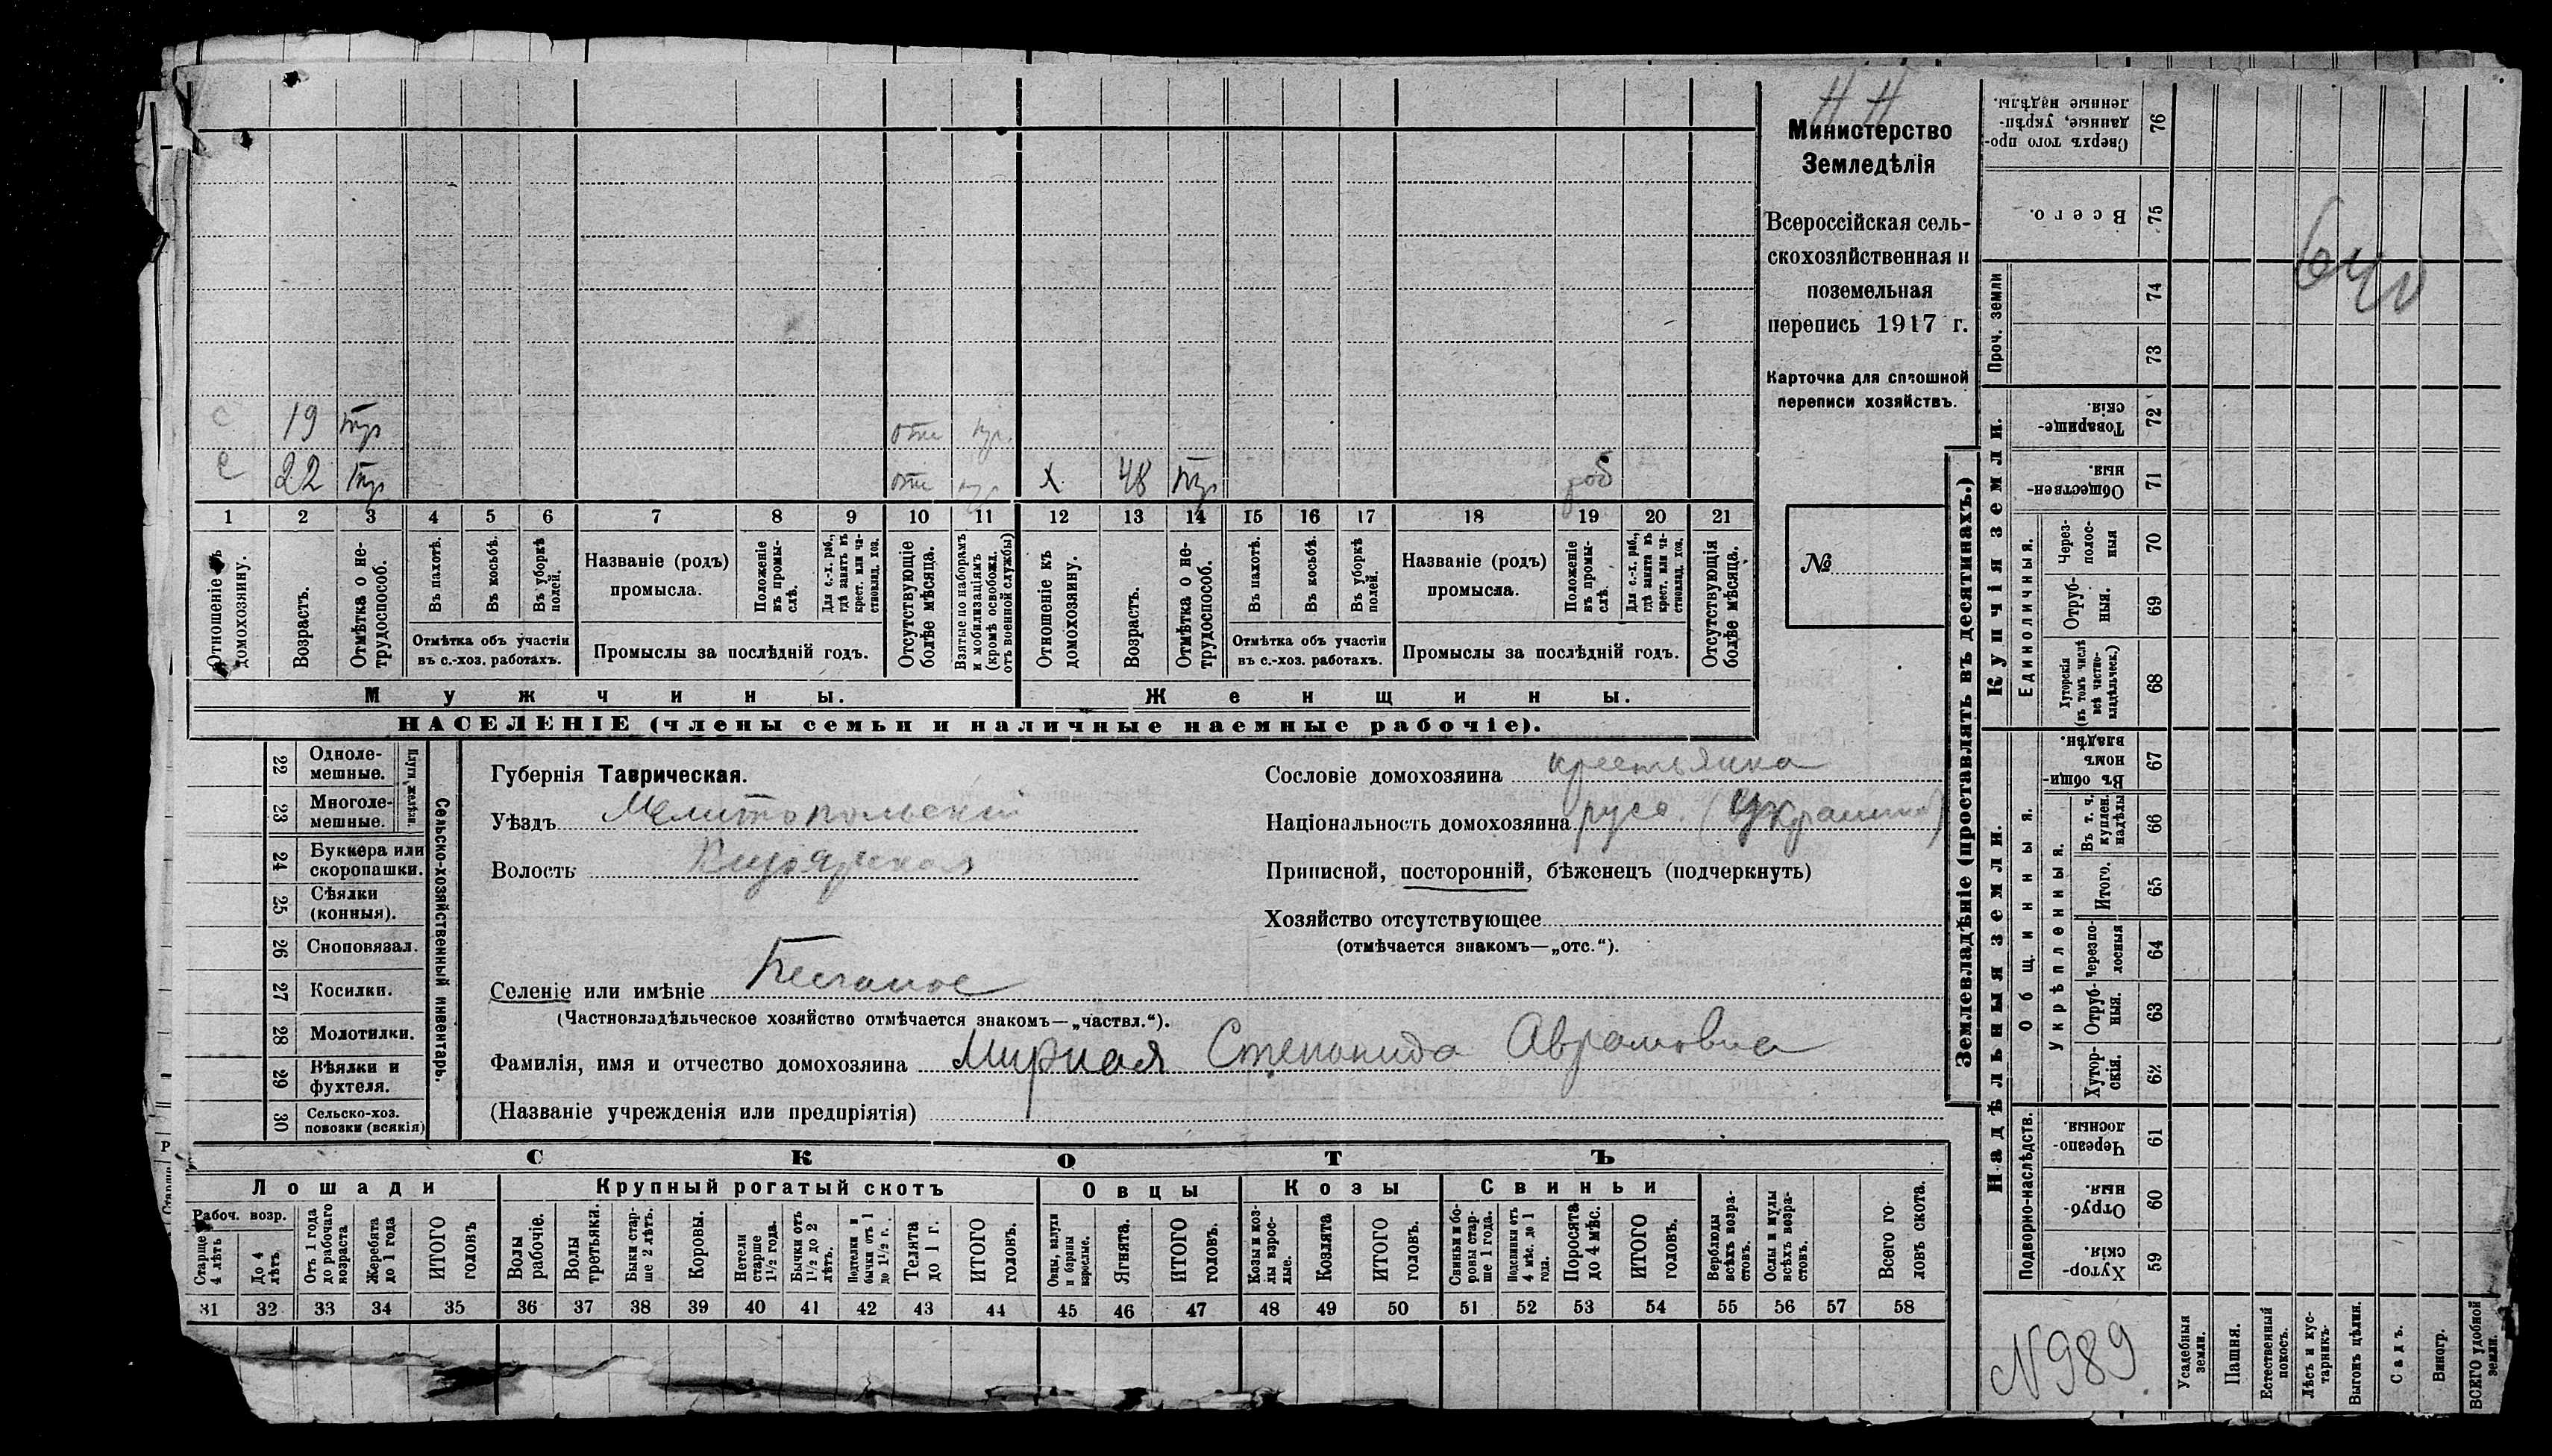 Н Н
Министерство
Земледѣлія
Всероссійская сель-
скохозяйственная и
поземельная
перепись 1917 г.
Карточка для сплошной
переписи хозяйствъ.
№
с 19 тр
с 22 тр х 48 тр роб
1 2 3 4 5 6 7 8 9 10 11 12 13 14 15 16 17 18 19 20 21
Отношеніе къ домохозяину.
Возрастъ.
Отмѣтка о не-трудоспособ.
Въ пахотѣ.
Въ косьбѣ.
Въ уборкѣ полей.
Отмѣтка объ участіи
въ с.-хоз. работахъ.
Названіе (родъ)
промысла.
Положеніе въ промы-слѣ.
Для с.-х. раб., гдѣ занятъ въ крест. или ча-стновлад. хоз.
Промыслы за послѣдній годъ.
Отсутствующіе болѣе мѣсяца.
Взятые по наборамъ и мобилизаціямъ (кромѣ освобожд. отъ военной службы)
Отношеніе къ домохозяину.
Возрастъ.
Отмѣтка о не-трудоспособ.
Въ пахотѣ.
Въ косьбѣ.
Въ уборкѣ полей.
Отмѣтка объ участіи
въ с.-хоз. работахъ.
Названіе (родъ)
промысла.
Положеніе въ промы-слѣ.
Для с.-х. раб., гдѣ занята въ крест. или ча-стновлад. хоз.
Промыслы за послѣдній годъ.
Отсутствующія болѣе мѣсяца.
Мужчины. Женщины.
НАСЕЛЕНІЕ (члены семьи и наличные наемные рабочіе).
22 Одноле-мешные.
23 Многоле-мешные.
Плуги, желѣзн.
24 Буккера или скоропашки.
25 Сѣялки (конныя).
26 Сноповязал.
27 Косилки.
28 Молотилки.
29 Вѣялки и фухтеля.
30 Сельско-хоз. повозки (всякія)
Сельско-хозяйственный инвентарь.
Губернія Таврическая.
Уѣздъ Мелитопольскій
Волость Кизіярская
Селеніе или имѣніе Песчаное
(Частновладѣльческое хозяйство отмѣчается знакомъ—„частвл.“).
Фамилія, имя и отчество домохозяина Мирная Степанида Аврамовна
(Названіе учрежденія или предпріятія)
Сословіе домохозяина крестьянка
Національность домохозяина русс.
Приписной, посторонній, бѣженецъ (подчеркнуть)
Хозяйство отсутствующее
(отмѣчается знакомъ—„отс.“).
СКОТЪ
Лошади
Крупный рогатый скотъ
Овцы
Козы
Свиньи
Рабоч. возр.
Старше 4 лѣтъ
До 4 лѣтъ.
Отъ 1 года до рабочаго возраста
Жеребята до 1 года
ИТОГО головъ
Волы рабочіе.
Волы третьяки.
Быки стар-ше 2 лѣтъ.
Коровы.
Нетели старше 1½ года.
Бычки отъ 1½ до 2 лѣтъ.
Подтелки и бычки отъ 1 до 1½ г.
Телята до 1 г.
ИТОГО головъ.
Овцы, валухи и бараны взрослые.
Ягнята.
ИТОГО головъ.
Козы и коз-лы взрос-лые.
Козлята
ИТОГО головъ.
Свиньи и бо-ровы стар-ше 1 года.
Подсвинки отъ 4 мѣс. до 1 года.
Поросята до 4 мѣс.
ИТОГО головъ.
Верблюды всѣхъ возра-стовъ.
Ослы и мулы всѣхъ возра-стовъ.
Всего го-ловъ скота.
31 32 33 34 35 36 37 38 39 40 41 42 43 44 45 46 47 48 49 50 51 52 53 54 55 56 57 58
Землевладѣніе (проставлять въ десятинахъ.)
Сверхъ того про-данные, укрѣп-ленные надѣлы. 76
Всего. 75
Проч. земли
74
73
Купчія земли.
Товарище-скія. 72
Обществен-ныя. 71
Единоличныя.
Через-полос-ныя 70
Отруб-ныя. 69
Хуторскія (въ томъ числѣ всѣ частно-владѣльческ.) 68
Надѣльныя земли.
Общинныя.
Въ общи-номъ владѣн. 67
Укрѣпленныя.
Въ т. ч. куплен. надѣлы 66
Итого. 65
Черезпо-лосныя 64
Отруб-ныя. 63
Хутор-скія. 62
Подворно-наслѣдств.
Черезпо-лосныя. 61
Отруб-ныя. 60
Хутор-скія. 59
640
N 989
Усадебныя земли.
Пашня.
Естественный покосъ.
Лѣсъ и кус-тарникъ.
Выгонъ цѣлин.
Садъ.
Виногр.
ВСЕГО удобной земли.